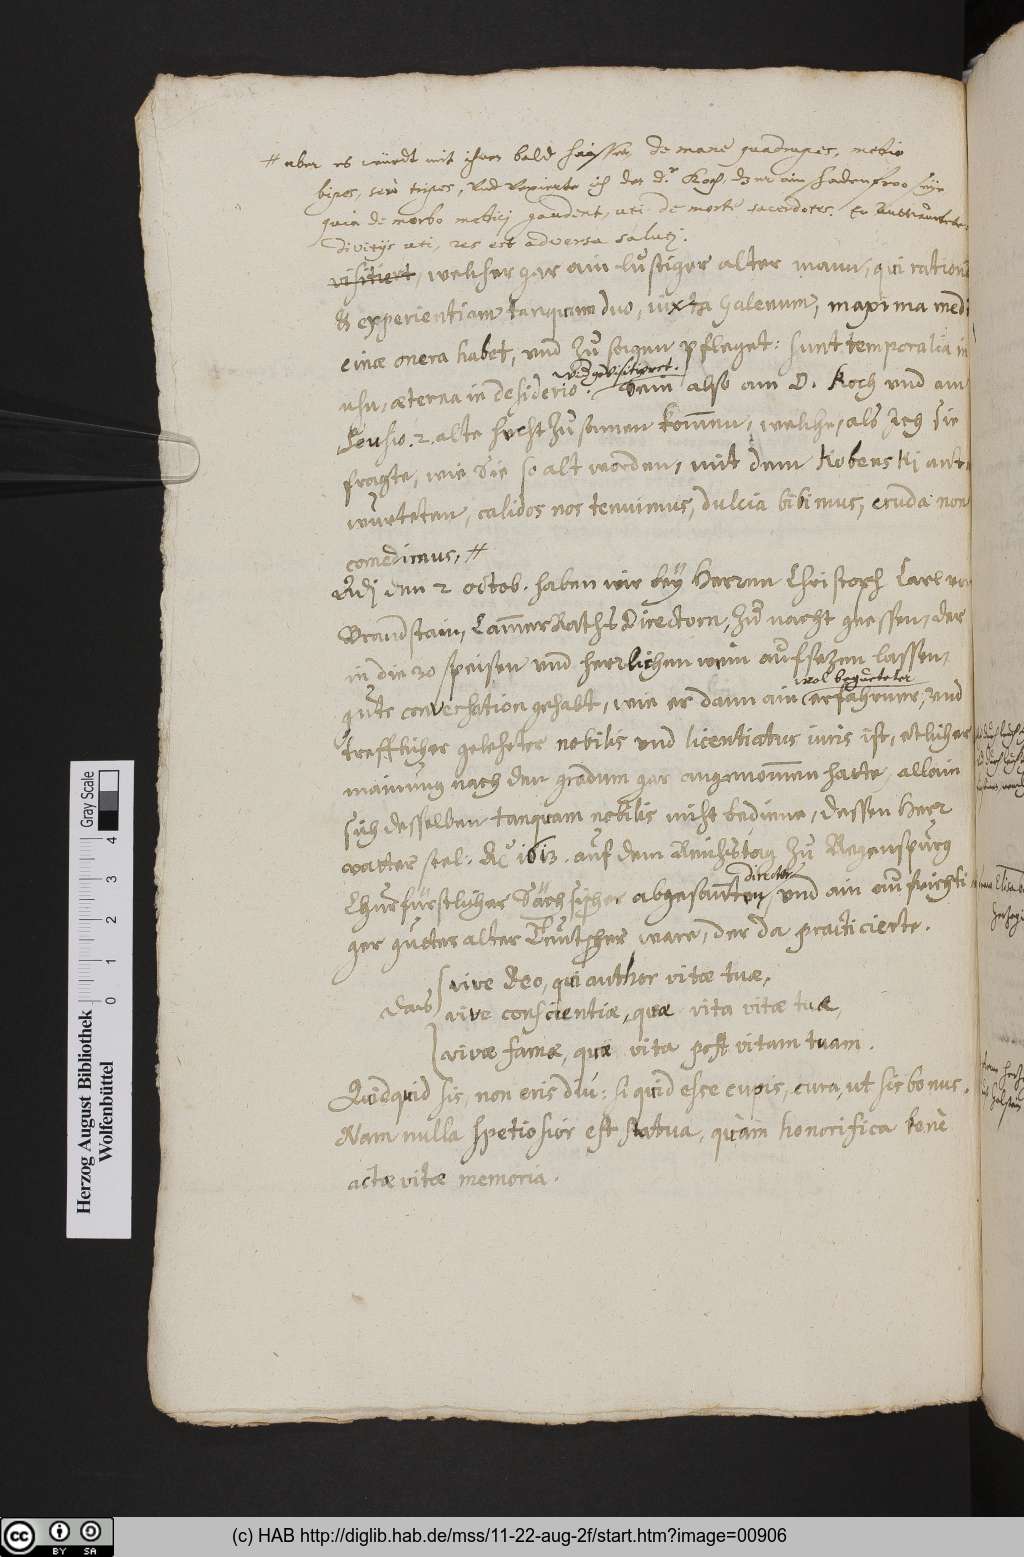 # aber es würdt mit ihnen bald haissen, de mane quadrupes, meridie
bipes, serò tripes, Vnd vexierte ich den d.r Koch, dz er ain schadenfroo seye
quia de morbo medicj gaudent, uti de morte sacerdotes.
divitijs uti, res est adversa salutj.
visitiert, welcher gar ain lustiger alter mann, qui rationem
& experientiam tanquam duo, iuxta Galenum, maxima medi
cinæ onera habet, vnd zu sagen pfleget: sunt temporalia in
usu, æterna in desiderio. vnd gevisitieret. Sein also am D. Koch vnd am
2. alte zusamen kommen, welche, als Ich sie
fragte, wie Sie so alt worden, mit dem Kobenskj antt
wurteten, calidos nos tenuimus, dulcia bibimus, cruda non
comedimus, #
Adj den 2 octob. haben wir bey Herren Christoph Carl von
Brandstain, CammerRaths Directorn, zu nacht geessen, der
in die 20 speisen vnd herrlichen wein aufsezen lassen,
gute conversation gehalt, wie er dann ain wol begüeteter erfahrner, vnd
trefflicher gelehrter nobilis vnd licentiatus iuris ist, etlicher
mainung nach den gradum gar angenommen hatte, allain
sich desselben tanquam nobilis nicht bediene, dessen Herr
vatter seel: Ao 1613. auf dem Reichstag zu Regenspurg
Churfürstlicher Sächsischer abgesantten director, vnd ain aufrichti
ger gueter alter Teutscher ware, der da practicierte.
das
vive Deo, qui author vitæ tuæ,
vive conscientiæ, quæ vita vitæ tuæ,
vivæ famæ, quæ vita post vitam tuam.
Quidquid sis, non eris diù: si quid esse cupis, cura, ut sis bonus.
Nam nulla spetiosior est statua, quàm honorifica benè
actæ vitæ memoria.
Herzog August Bibliothek
Wolfenbüttel
0 1 2 3 4
Gray Scale
cc BY SA
(c) HAB http://diglib.hab.de/mss/11-22-aug-2f/start.htm?image=00906